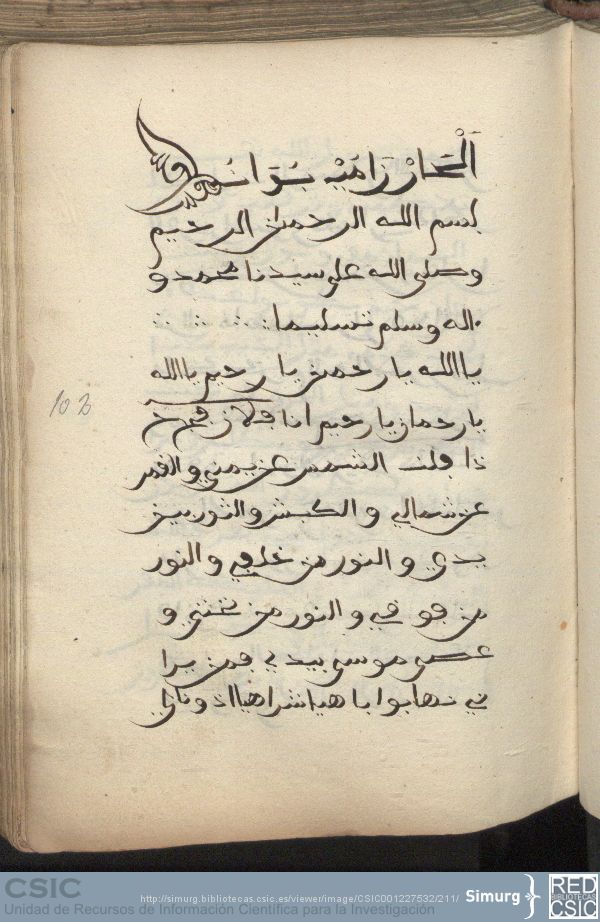 بسم الله الرحمن الرحيم
وصلى الله على سيدنا محمد و
اله وسلم تسليما
يا الله يا رحمن يا رحيم يا الله
يا رحمان يا رحيم انا
الشمس عن يمني والقمر
عن شمالي والكبش والثور بين
يدي والنور من خلفي والنور
من فوقي والنور من تحتي و
عصى موسى بيدي فمن يرا
ني
102
CSIC
Unidad de Recursos de Información Científica para la Investigación
http://simurg.bibliotecas.csic.es/viewer/image/CSIC001227532/211/
Simurg
RED BIBLIOTECAS CSIC